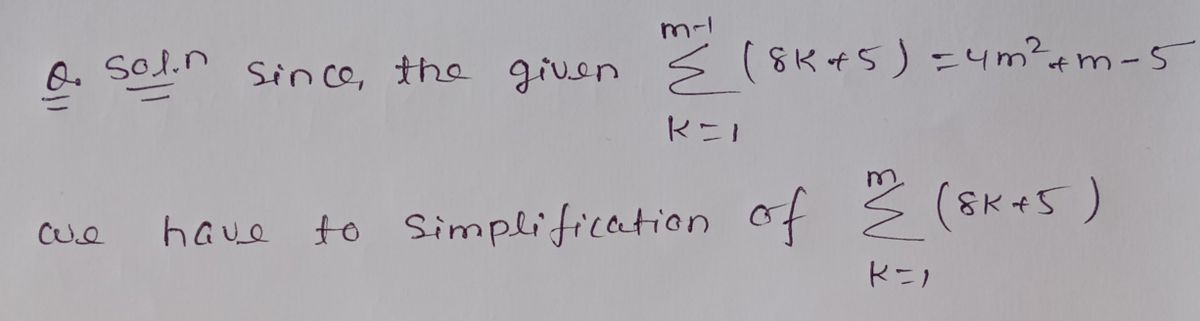 Q. Sol.n Since, the given m-1 Σ K=1 (8K+5) = 4m²+m-5
we have to Simplification of m Σ K=1 (8K+5)